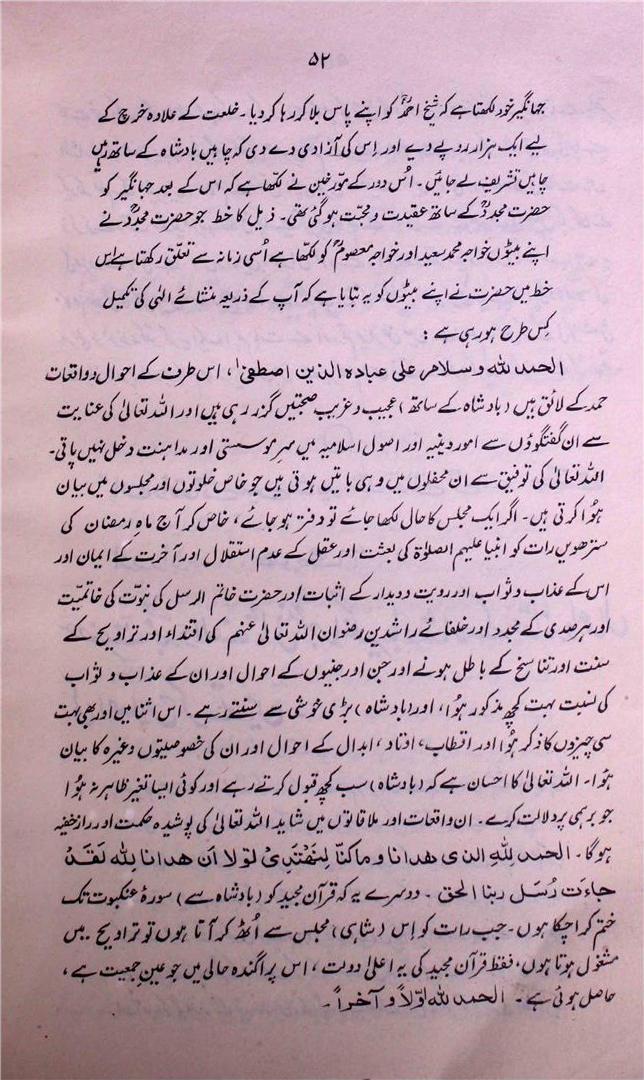 ۵۲
جہانگیر خود لکھتا ہے کہ شیخ احمدؒ کو اپنے پاس بلا کر رہا کر دیا۔ خلعت کے علاوہ خرچ کے
لیے ایک ہزار روپے دیے اور اس کی آزادی دے دی کہ چاہیں بادشاہ کے ساتھ رہیں
چاہیں تشریف لے جائیں۔ اُس دور کے مورخین نے لکھا ہے کہ اس کے بعد جہانگیر کو
حضرت مجددؒ کے ساتھ عقیدت و محبت ہو گئی تھی۔ ذیل کا خط جو حضرت مجددؒ نے
اپنے بیٹوں خواجہ محمد سعید اور خواجہ معصومؒ کو لکھا ہے اُسی زمانہ سے تعلق رکھتا ہے اِس
خط میں حضرت نے اپنے بیٹوں کو یہ بتایا ہے کہ آپ کے ذریعہ منشائے الٰہی کی تکمیل
کِس طرح ہو رہی ہے :
الحمد للہ و سلام علی عبادہ الذین اصطفیٰ، اس طرف کے احوال و واقعات
حمد کے لائق ہیں (بادشاہ کے ساتھ) عجیب و غریب صحبتیں گزر رہی ہیں اور اللہ تعالیٰ کی عنایت
سے ان گفتگوؤں سے امور دینیہ اور اصول اسلامیہ میں سرِمو سستی اور مداہنت دخل نہیں پاتی۔
اللہ تعالیٰ کی توفیق سے ان محفلوں میں وہی باتیں ہوتی ہیں جو خاص خلوتوں اور مجلسوں میں بیان
ہؤا کرتی ہیں۔ اگر ایک مجلس کا حال لکھا جائے تو دفتر ہو جائے، خاص کر آج ماہِ رمضان کی
سترھویں رات کو انبیا علیہم الصلوٰۃ کی بعثت اور عقل کے عدم استقلال اور آخرت کے ایمان اور
اس کے عذاب و ثواب اور رویت و دیدار کے اثبات اور حضرت خاتم الرسل کی نبوّت کی خاتمیّت
اور ہر صدی کے مجدد اور خلفائے راشدین رضوان اللہ تعالیٰ عنہم کی اقتداء اور تراویح کے
سنت اور تناسخ کے باطل ہونے اور جن اور جنیوں کے احوال اور ان کے عذاب و ثواب
کی نسبت بہت کچھ مذکور ہؤا، اور (بادشاہ) بڑی خوشی سے سنتے رہے۔ اس اثنا میں اور بھی بہت
سی چیزوں کا ذکر ہؤا اور اقطاب، اوتاد، ابدال کے احوال اور ان کی خصوصیتوں وغیرہ کا بیان
ہؤا۔ اللہ تعالیٰ کا احسان ہے کہ (بادشاہ) سب کچھ قبول کرتے رہے اور کوئی ایسا تغیر ظاہر نہ ہؤا
جو برہمی پر دلالت کرے۔ ان واقعات اور ملاقاتوں میں شاید اللہ تعالیٰ کی پوشیدہ حکمت اور راز خفیہ
ہو گا۔ الحمد للہِ الذی ھدانا و ماکنّا لِنَھْتَدِیْ لَوْلا اَن ھدانا للہ لَقَدْ
جاءَت رُسُل ربنا الحق۔ دوسرے یہ کہ قرآن مجید کو (بادشاہ سے) سورۂ عنکبوت تک
ختم کرا چکا ہوں۔ جب رات کو اِس (شاہی) مجلس سے اُٹھ کر آتا ہوں تو تراویح میں
مشغول ہوتا ہوں، فقط قرآن مجید کی یہ اعلیٰ دولت، اس پراگندہ حالی میں جو عین جمعیت ہے،
حاصل ہوئی ہے۔ الحمد للہ اوّلاً و آخراً۔